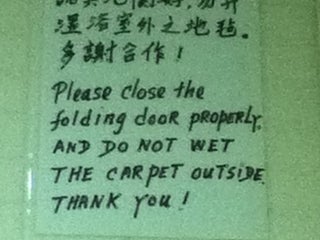 濕浴室外之地毡。
多謝合作！
Please close the
folding door properly,
AND DO NOT WET
THE CARPET OUTSIDE.
THANK you!